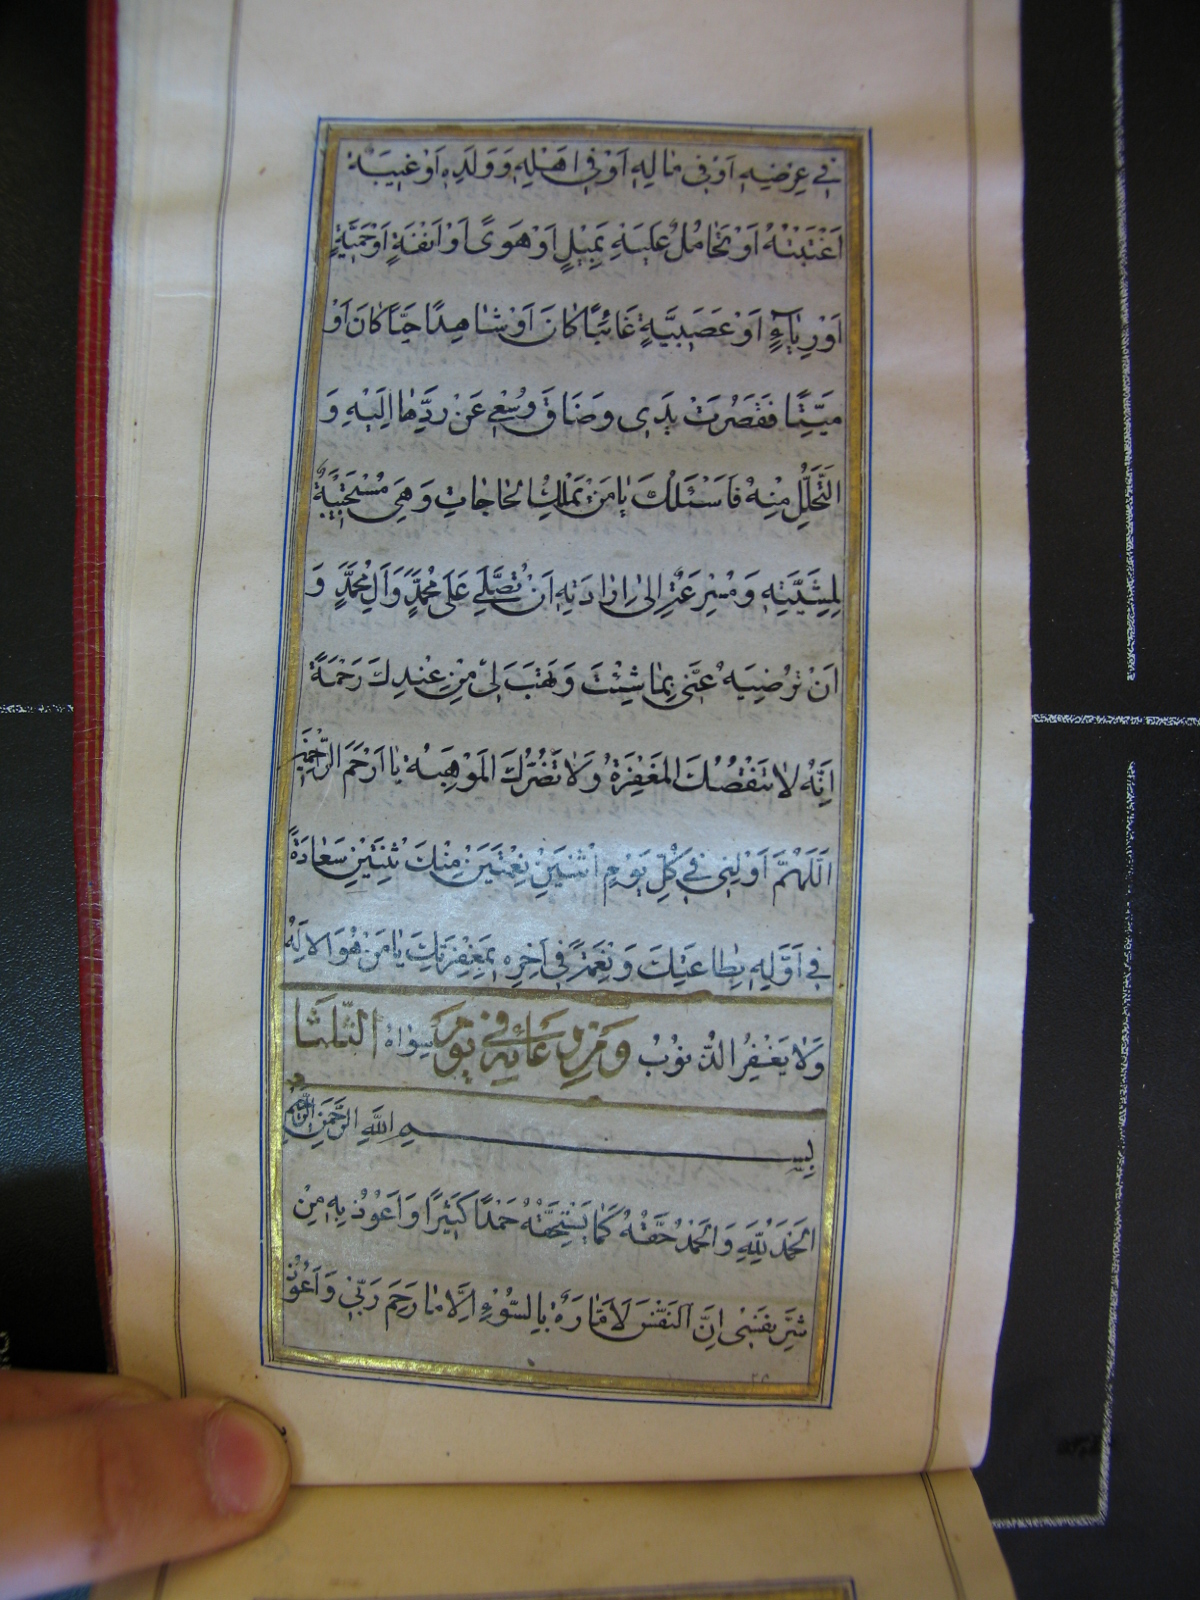 فِي عِرْضِهِ اَوْ فِي مَالِهِ اَوْ فِي اَهْلِهِ وَوَلَدِهِ اَوْ غَيْبَةٌ
اغْتَبْتُهُ اَوْ تَحَامُلٌ عَلَيْهِ بِمَيْلٍ اَوْ هَوًى اَوْ اَنَفَةٍ اَوْ حَمِيَّةٍ
اَوْ رِيَاءٍ اَوْ عَصَبِيَّةٍ غَائِبًا كَانَ اَوْ شَاهِدًا حَيًّا كَانَ اَوْ
مَيِّتًا فَقَصُرَتْ يَدِي وَضَاقَ وُسْعِي عَنْ رَدِّهَا اِلَيْهِ وَ
التَّحَلُّلِ مِنْهُ فَاَسْئَلُكَ يَا مَنْ يَمْلِكُ الْحَاجَاتِ وَهِيَ مُسْتَجِيبَةٌ
لِمَشِيَّتِهِ وَمُسْرِعَةٌ اِلَى اِرَادَتِهِ اَنْ تُصَلِّيَ عَلَى مُحَمَّدٍ وَآلِ مُحَمَّدٍ وَ
اَنْ تُرْضِيَهُ عَنِّي بِمَا شِئْتَ وَتَهَبَ لِي مِنْ عِنْدِكَ رَحْمَةً
اِنَّهُ لَا تَنْقُصُكَ الْمَغْفِرَةُ وَلَا تَضُرُّكَ الْمَوْهِبَةُ يَا اَرْحَمَ الرَّاحِمِينَ
اَللّهُمَّ اَوْلِنِي فِي كُلِّ يَوْمِ اثْنَيْنِ نِعْمَتَيْنِ مِنْكَ ثِنْتَيْنِ سَعَادَةً
فِي اَوَّلِهِ بِطَاعَتِكَ وَنِعْمَةً فِي آخِرِهِ بِمَغْفِرَتِكَ يَا مَنْ هُوَ الْاِلَهُ
وَلَا يَغْفِرُ الذُّنُوبَ سِوَاهُ وَمِنْ دُعَائِهِ فِي يَوْمِ الثَّلَثَا
بِسْمِ اللهِ الرَّحْمَنِ الرَّحِيمِ
اَلْحَمْدُ لِلّهِ وَالْحَمْدُ حَقُّهُ كَمَا يَسْتَحِقُّهُ حَمْدًا كَثِيرًا وَاَعُوذُ بِهِ مِنْ
شَرِّ نَفْسِي اِنَّ النَّفْسَ لَاَمَّارَةٌ بِالسُّوءِ اِلَّا مَا رَحِمَ رَبِّي وَاَعُوذُ